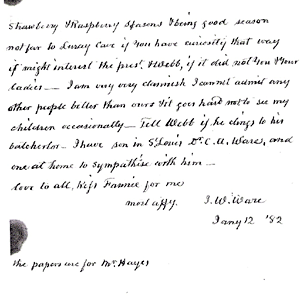 Strawberry & Raspberry Seasons & being good season
not far to Luray Cave if you have curiosity that way
it might interest the prest. & Webb, if it did not you & your
ladies — I am very very clannish I cannot admit any
other people better than ours & it goes hard not to see my
children occasionally — Tell Webb if he clings to his
batchelor — I have son in St Louis Dr. C. A. Ware, and
one at home to sympathise with him —
love to all, kiss Fannie for me
most affy. J. W. Ware
Jany 12 '82
The papers are for Mr Hayes